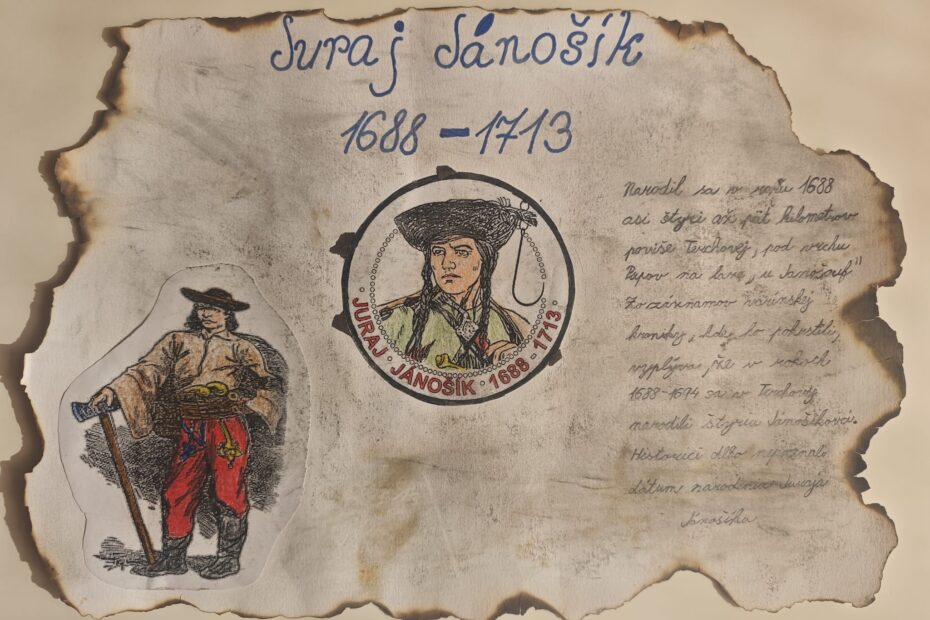 Juraj Jánošík
1688 - 1713
JURAJ · JÁNOŠÍK · 1688 - 1713
Narodil sa v roku 1688
asi štyri až päť kilometrov
povyše Terchovej, pod vrchu
Pupov na laze „u Jánošouf"
Zo záznamov varínskej
kroniky, kde ho pokrstili,
vyplýva, že v rokoch
1688-1694 sa v Terchovej
narodili štyria Jánošíkovci.
Historici dlho nepoznali
dátum narodenia Juraja
Jánošíka